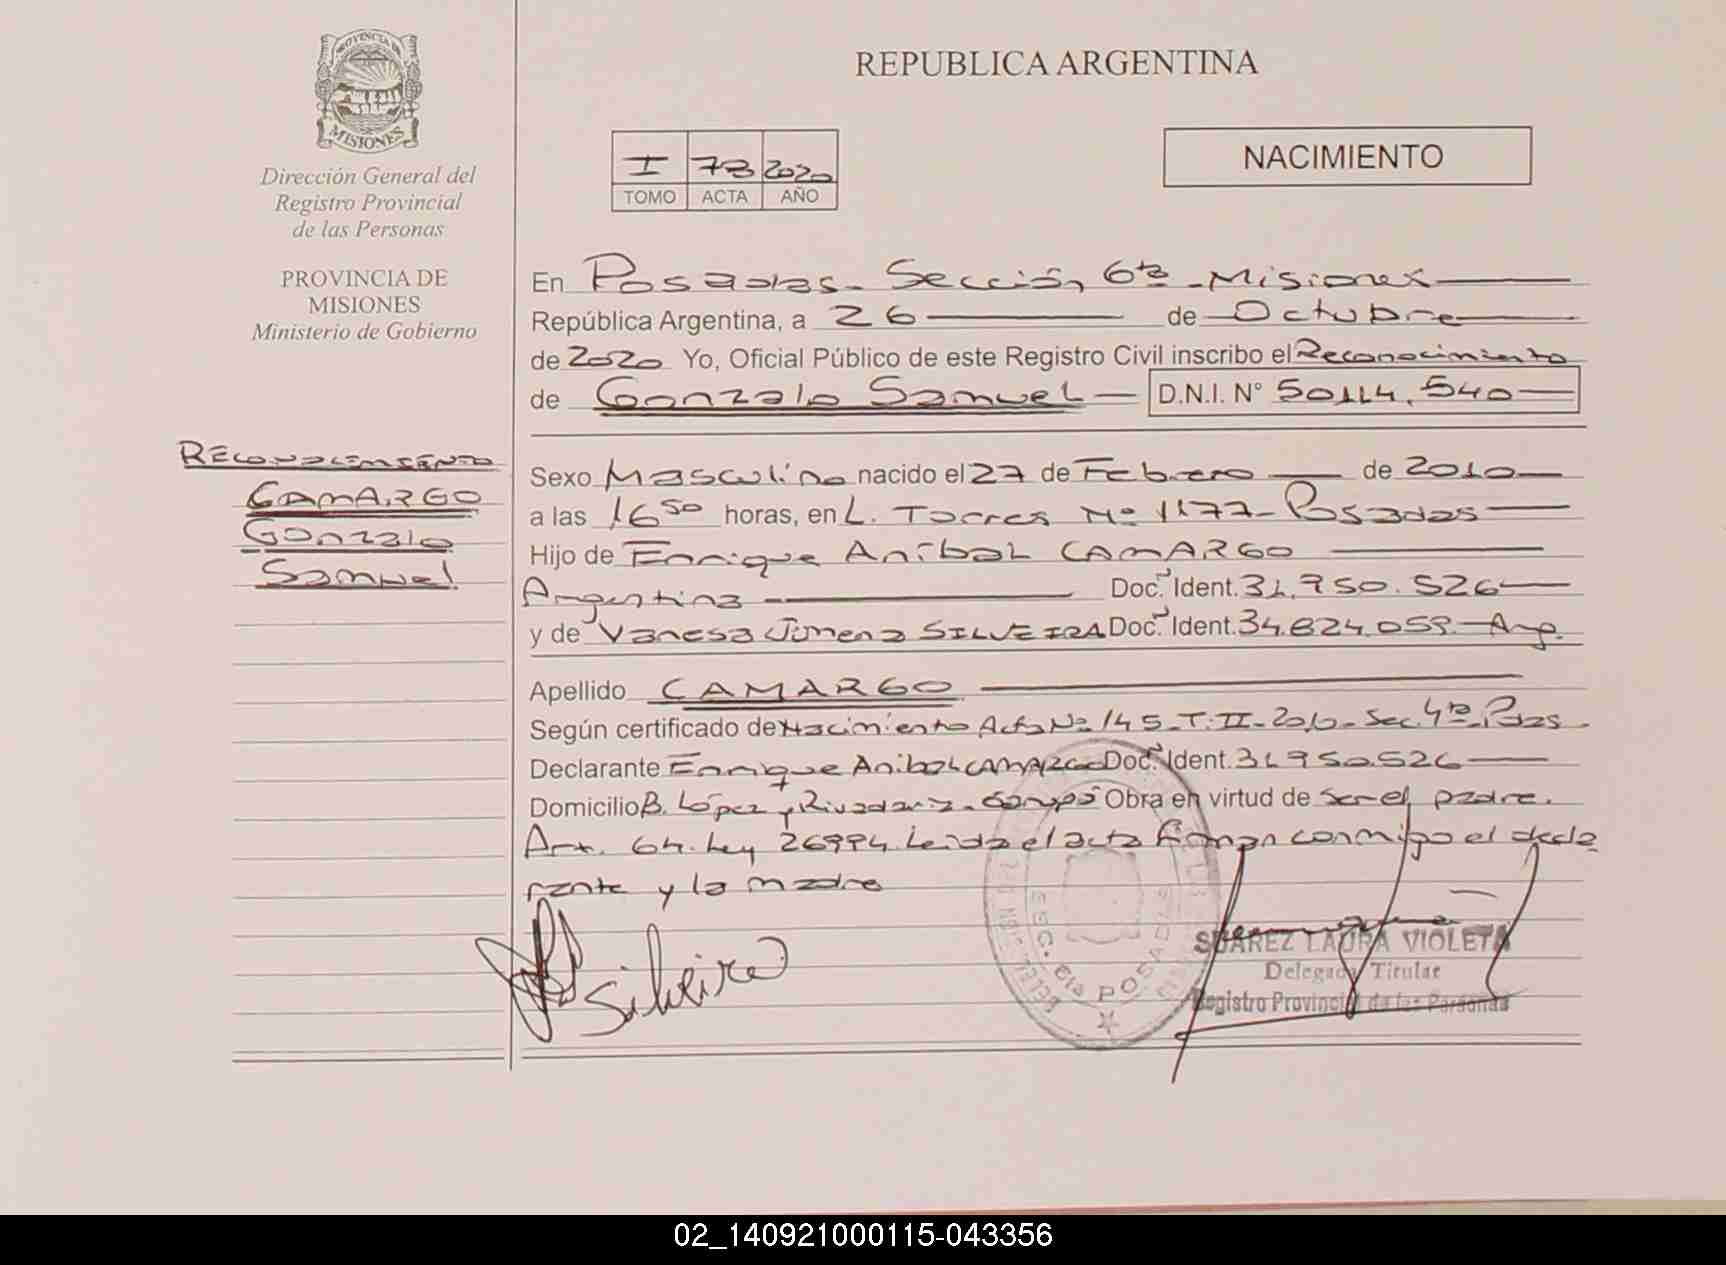 PROVINCIA DE
MISIONES
Dirección General del
Registro Provincial
de las Personas
PROVINCIA DE
MISIONES
Ministerio de Gobierno
RECONOCIMIENTO
CAMARGO
Gonzalo
Samuel
REPUBLICA ARGENTINA
I 73 2020
TOMO ACTA AÑO
NACIMIENTO
En Posadas - Sección 6ta - Misiones
República Argentina, a 26 de Octubre
de 2020 Yo, Oficial Público de este Registro Civil inscribo el Reconocimiento
de Gonzalo Samuel D.N.I. N° 50114.540
Sexo Masculino nacido el 27 de Febrero de 2010
a las 16 50 horas, en L. Torres Nº 1177 - Posadas
Hijo de Enrique Aníbal CAMARGO
Argentina Doc. Ident. 31.950.526
y de Vanesa Jimena SILVEIRA Doc. Ident. 34.824.059 - Arg.
Apellido CAMARGO
Según certificado de Nacimiento Acta Nº 145 - T. II - 2010 - Sec. 4ta - Pdas
Declarante Enrique Anibal CAMARGO Doc. Ident. 31950.526
Domicilio B. López y Rivadavia - Garupá Obra en virtud de ser el padre.
Art. 64. Ley 26994. Leida el acta firman conmigo el decla
rante y la madre
Silveira
SEC. 6ta POSADAS
SUAREZ LAURA VIOLETA
Delegada Titular
Registro Provincial de las Personas
02_140921000115-043356